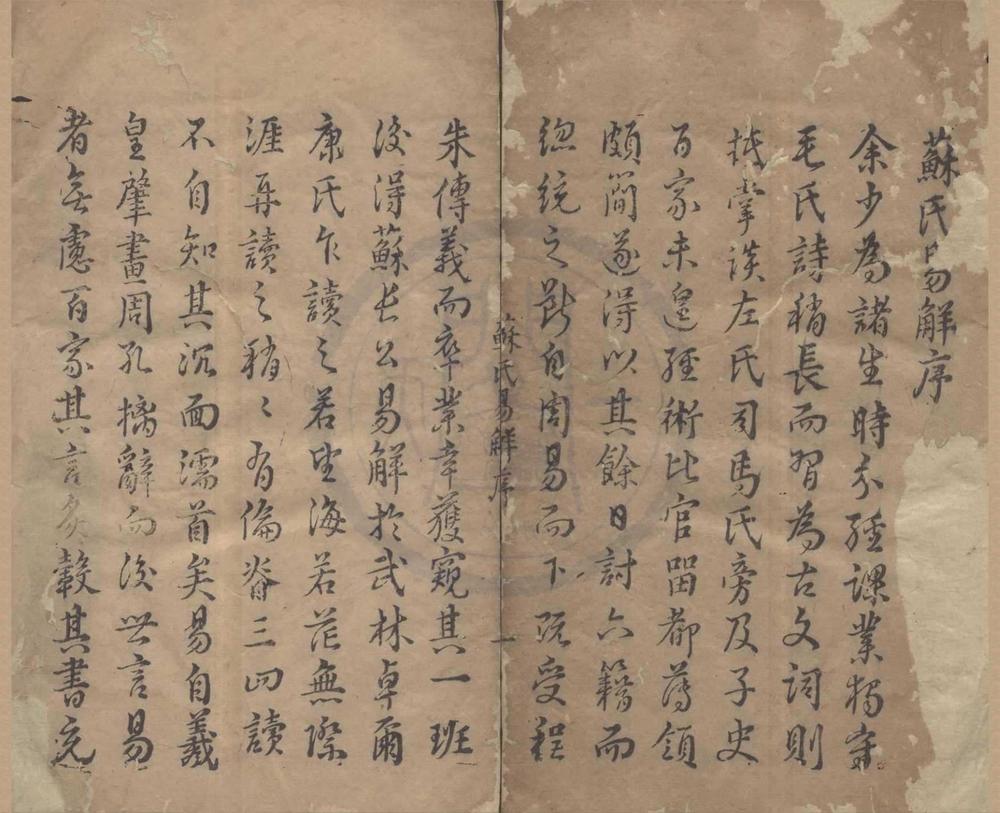 蘇氏易解序
余少為諸生時分經課業獨守
毛氏詩稍長而習為古文詞則
抵掌談左氏司馬氏旁及子史
百家未遑經術比官留都簿領
頗簡遂得以其餘日討六籍而
總統之斷自周易而下既受程
蘇氏易解序
一
朱傳義而卒業幸獲窺其一班
後得蘇長公易解於武林卓爾
康氏乍讀之若望海若茫無際
涯再讀之稍〻有倫脊三四讀
不自知其沉面濡首矣易自羲
皇肇畫周孔摛辭而後世言易
者無慮百家其言其書充